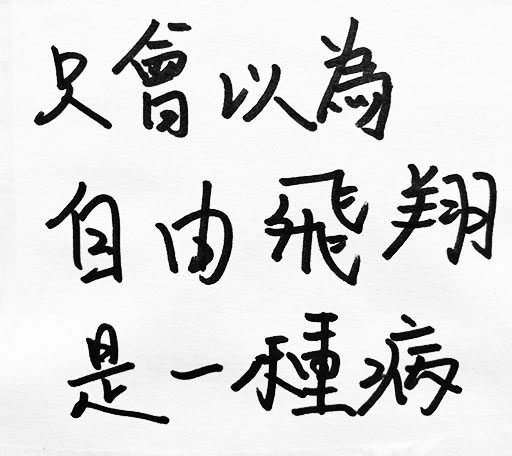 只會以為
自由飛翔
是一種病